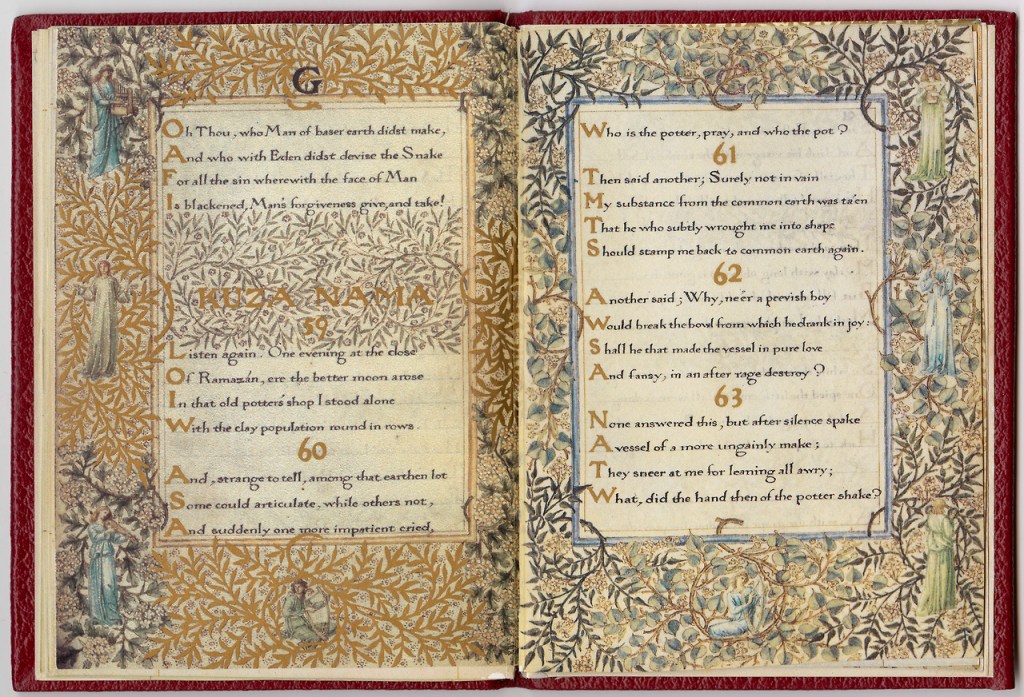 G
Oh Thou, who Man of baser earth didst make,
And who with Eden didst devise the Snake
For all the sin wherewith the face of Man
Is blackened, Mans forgiveness give, and take!
KUZA NAMA
59
Listen again. One evening at the close
Of Ramazán, ere the better moon arose
In that old potters' shop I stood alone
With the clay population round in rows.
60
And, strange to tell, among that earthen lot
Some could articulate, while others not,
And suddenly one more impatient cried,
Who is the potter, pray, and who the pot?
61
Then said another; Surely not in vain
My substance from the common earth was ta'en
That he who subtly wrought me into shape
Should stamp me back to common earth again.
62
Another said; Why, ne'er a peevish boy
Would break the bowl from which he drank in joy:
Shall he that made the vessel in pure love
And fansy, in an after rage destroy?
63
None answered this, but after silence spake
A vessel of a more ungainly make;
They sneer at me for leaning all awry;
What, did the hand then of the potter shake?